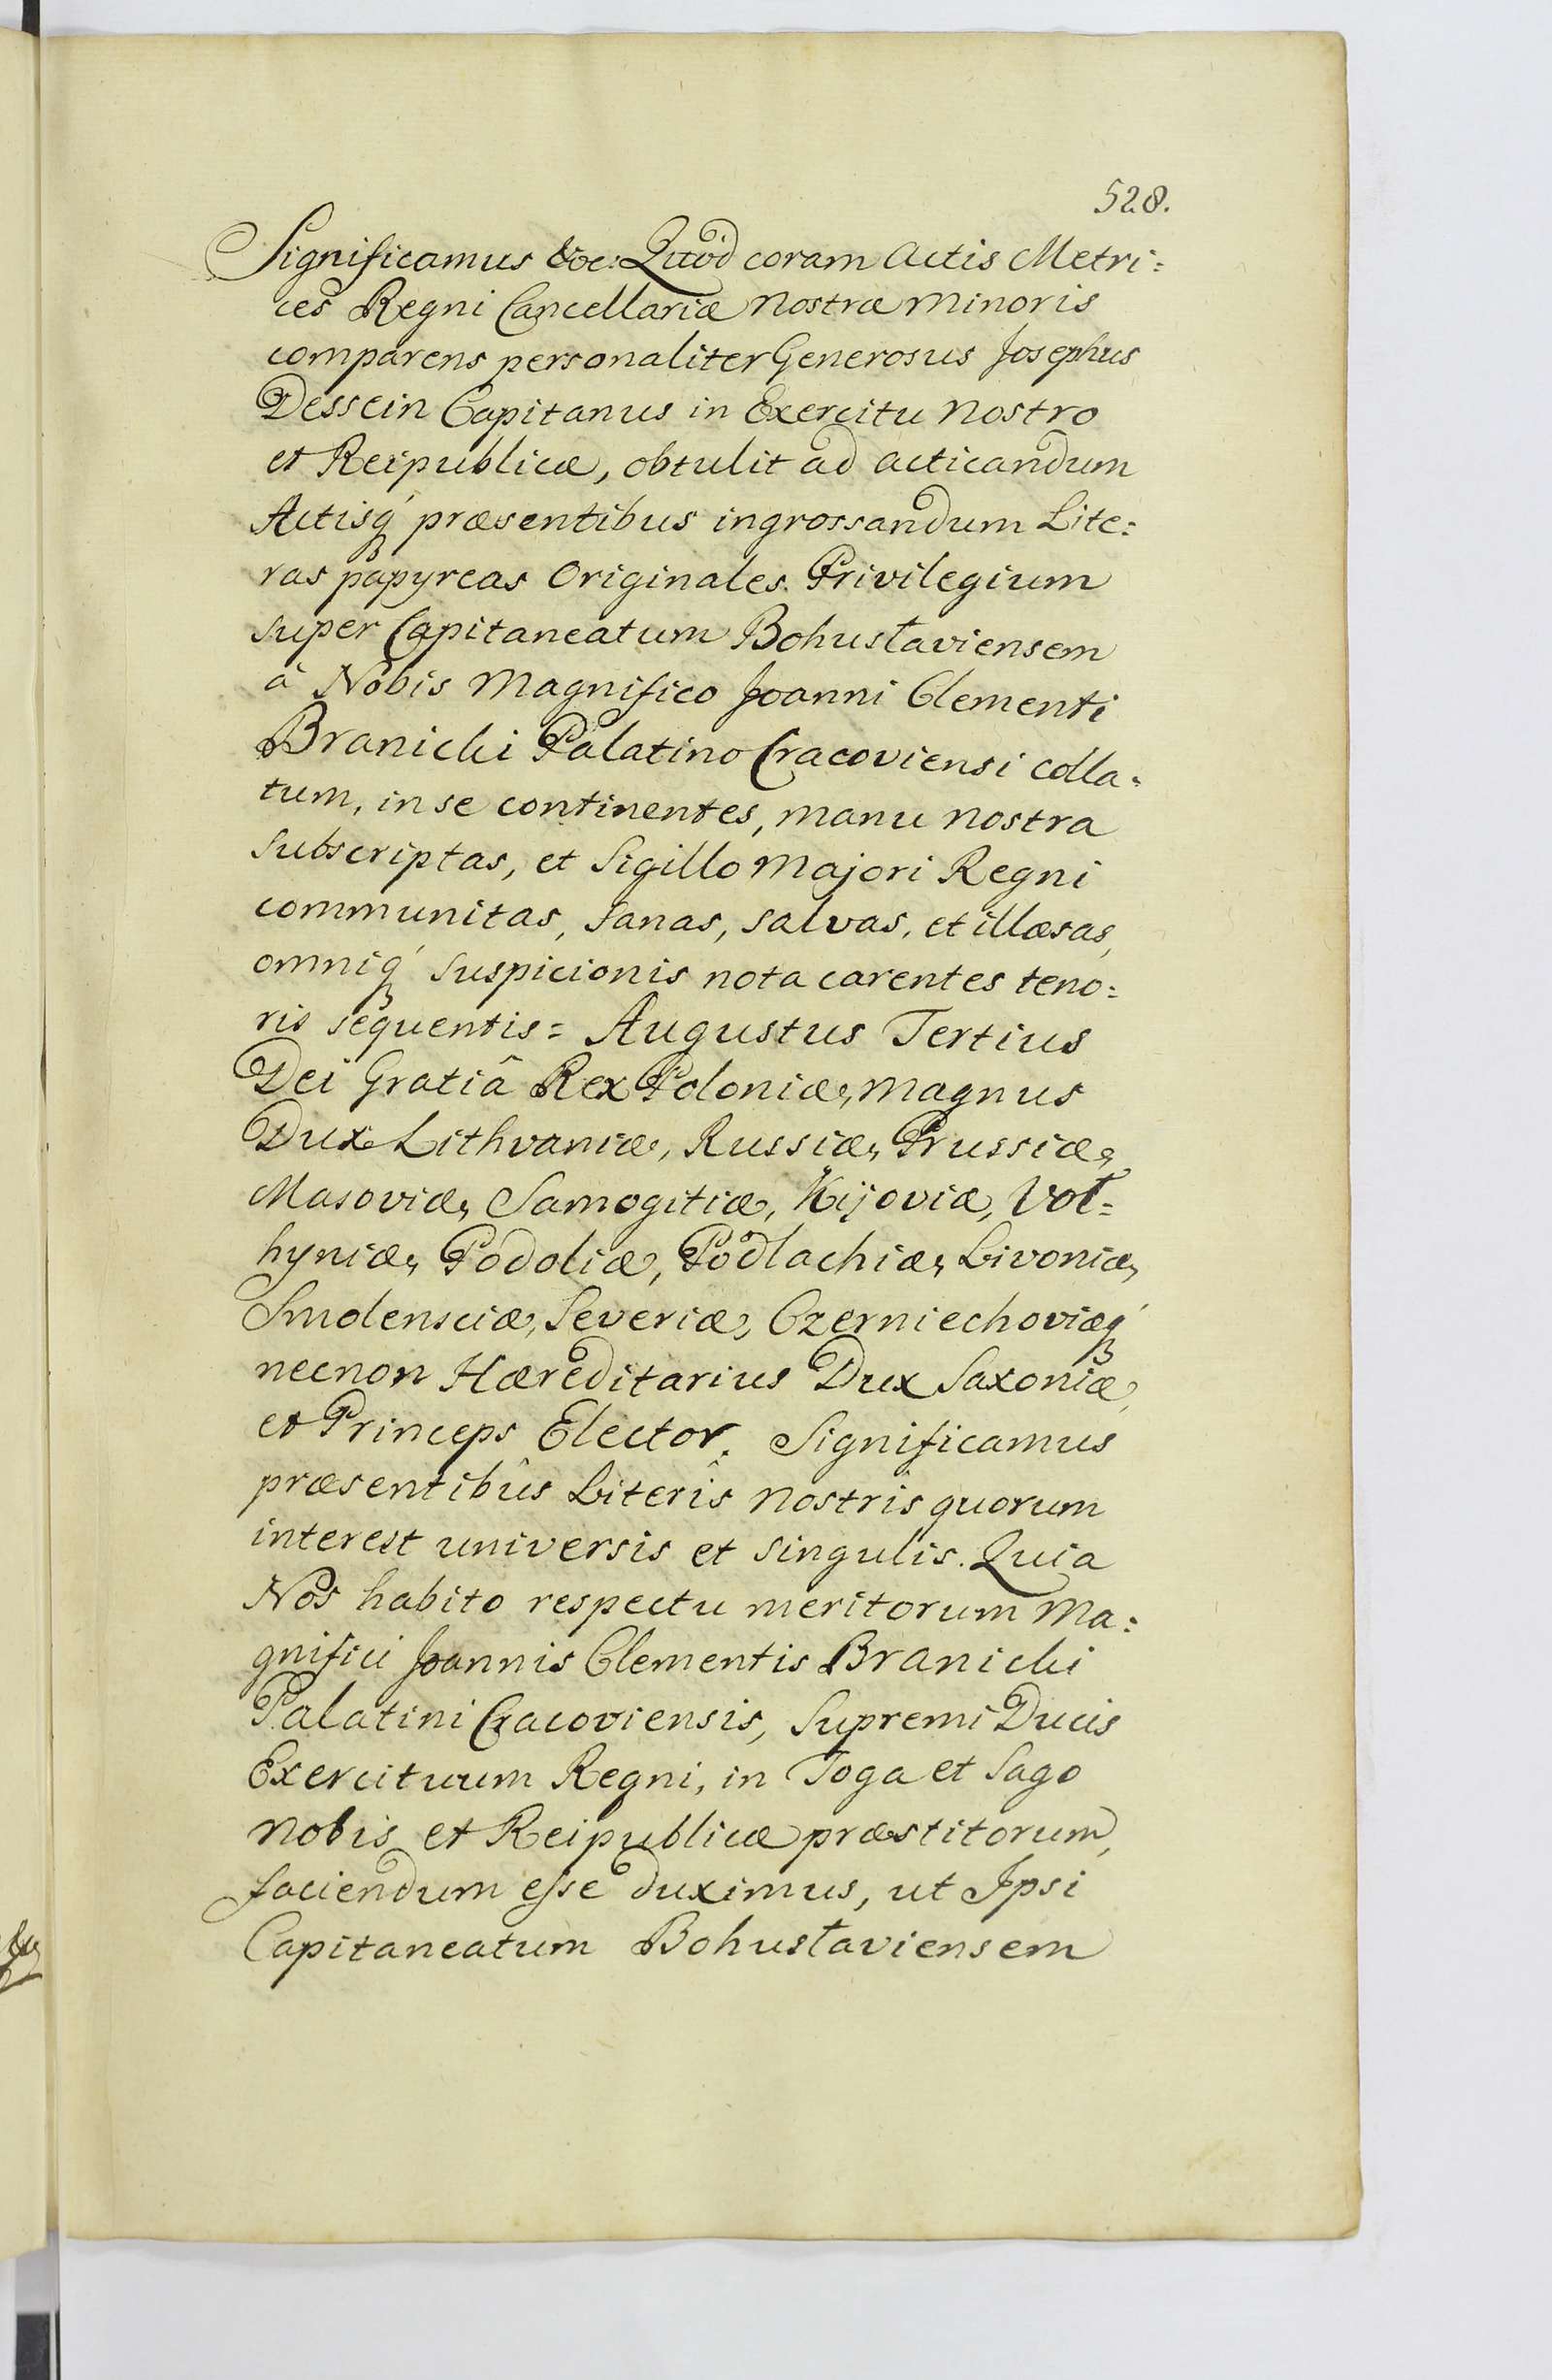 528.
Significamus &oc: Quòd coram Actis Metri=
ces Regni Cancellariæ Nostræ Minoris
comparens personaliter Generosus Josephus
Dessein Capitanus in Exercitu Nostro
et Reipublicæ, obtulit ad acticandum
Actisq́ præsentibus ingrossandum Lite=
ras papyreas Originales. Privilegium
super Capitaneatum Bohusłaviensem
à Nobis Magnifico Joanni Clementi
Branicki Palatino Cracoviensi colla=
tum, in se continentes, manu Nostra
Subscriptas, et Sigillo Majori Regni
communitas, sanas, salvas, et illæsas,
omniq́ suspicionis nota carentes teno=
ris sequentis = Augustus Tertius
Dei Gratiâ Rex Poloniæ, Magnus
Dux Lithvaniæ, Russiæ, Prussiæ,
Masoviæ, Samogitiæ, Kijoviæ, Voł=
hyniæ, Podoliæ, Podlachiæ, Livoniæ,
Smolensciæ, Severiæ, Czerniechoviæq́
necnon Hæreditarius Dux Saxoniæ,
et Princeps Elector. Significamus
præsentibûs Literîs Nostrîs quorum
interest universis et singulis. Quia
Nos habito respectu meritorum Ma=
gnifici Joannis Clementis Branicki
Palatini Cracoviensis, Supremi Ducis
Exercituum Regni, in Toga et Sago
Nobis et Reipublicæ præstitorum,
faciendum esse duximus, ut Ipsi
Capitaneatum Bohusłaviensem